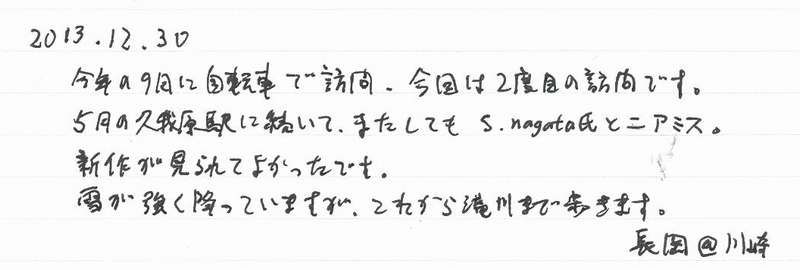 2013.12.30
今年の9月に自転車で訪問、今回は2度目の訪問です。
5月の久我原駅に続いて、またしても S.nagata氏とニアミス。
新作が見られてよかったです。
雪が強く降っていますが、これから滝川まで歩きます。
長岡@川崎